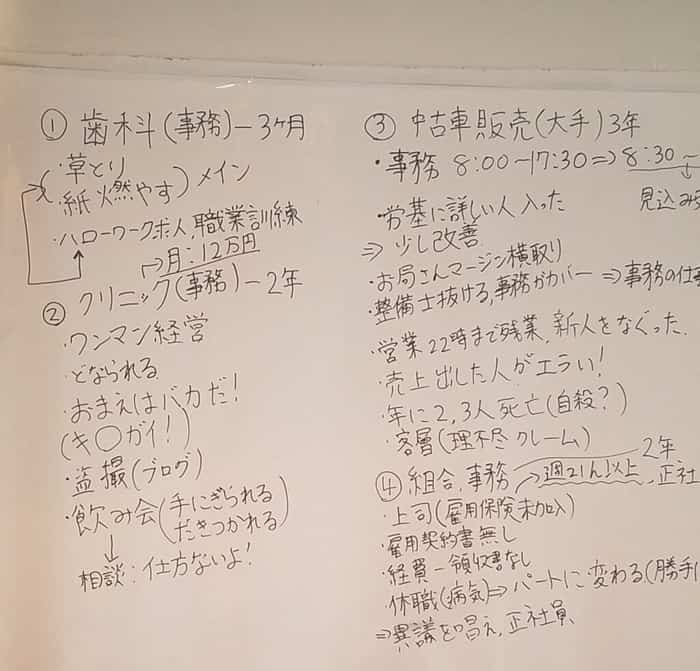 ① 歯科(事務)ー3ヶ月
・草とり
・紙燃やす) メイン
・ハローワーク求人,職業訓練
→月:12万円
② クリニック(事務)ー2年
・ワンマン経営
・どなられる
・おまえはバカだ!
(キ〇ガイ!)
・盗撮(ブログ)
・飲み会(手にぎられる
だきつかれる)
↓
相談:仕方ないよ!
③ 中古車販売(大手)3年
・事務 8:00ー17:30⇒8:30ー
見込み
・労基に詳しい人入った
⇒ 少し改善
・お局さんマージン横取り
・整備士抜ける,事務がカバー ⇒事務の仕事
・営業22時まで残業,新人をなぐった.
・売上出した人がエラい!
・年に2,3人死亡(自殺?)
・客層(理不尽クレーム)
④ 組合,事務 2年
→週21h以上,正社
・上司(雇用保険未加入)
・雇用契約書無し
・経費ー領収書なし
・休職(病気)⇒パートに変わる(勝手に
⇒異議を唱え,正社員